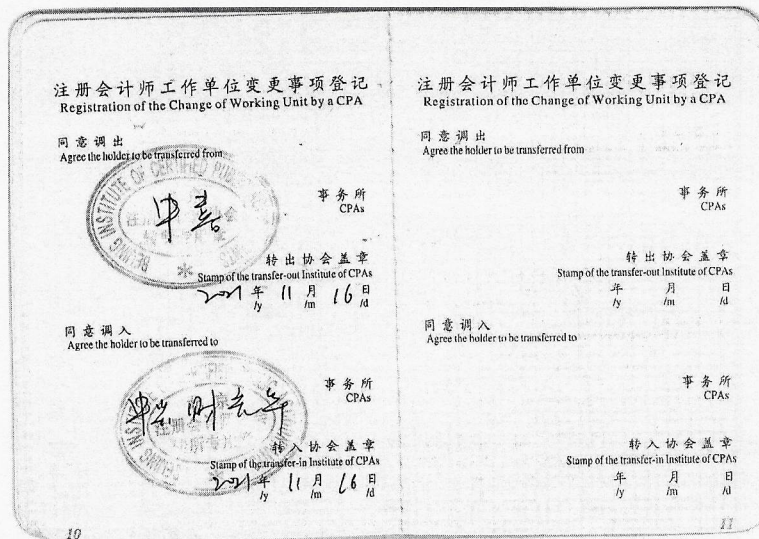 注册会计师工作单位变更事项登记
Registration of the Change of Working Unit by a CPA
同意调出
Agree the holder to be transferred from
BEIJING INSTITUTE OF CERTIFIED PUBLIC
注册
中喜
事务所
CPAs
转出协会盖章
Stamp of the transfer-out Institute of CPAs
2021 年 11 月 16 日
/y /m /d
同意调入
Agree the holder to be transferred to
BEIJING
注册会
所专用
事务所
CPAs
转入协会盖章
Stamp of the transfer-in Institute of CPAs
2021 年 11 月 16 日
/y /m /d
10
注册会计师工作单位变更事项登记
Registration of the Change of Working Unit by a CPA
同意调出
Agree the holder to be transferred from
事务所
CPAs
转出协会盖章
Stamp of the transfer-out Institute of CPAs
年 月 日
/y /m /d
同意调入
Agree the holder to be transferred to
事务所
CPAs
转入协会盖章
Stamp of the transfer-in Institute of CPAs
年 月 日
/y /m /d
11